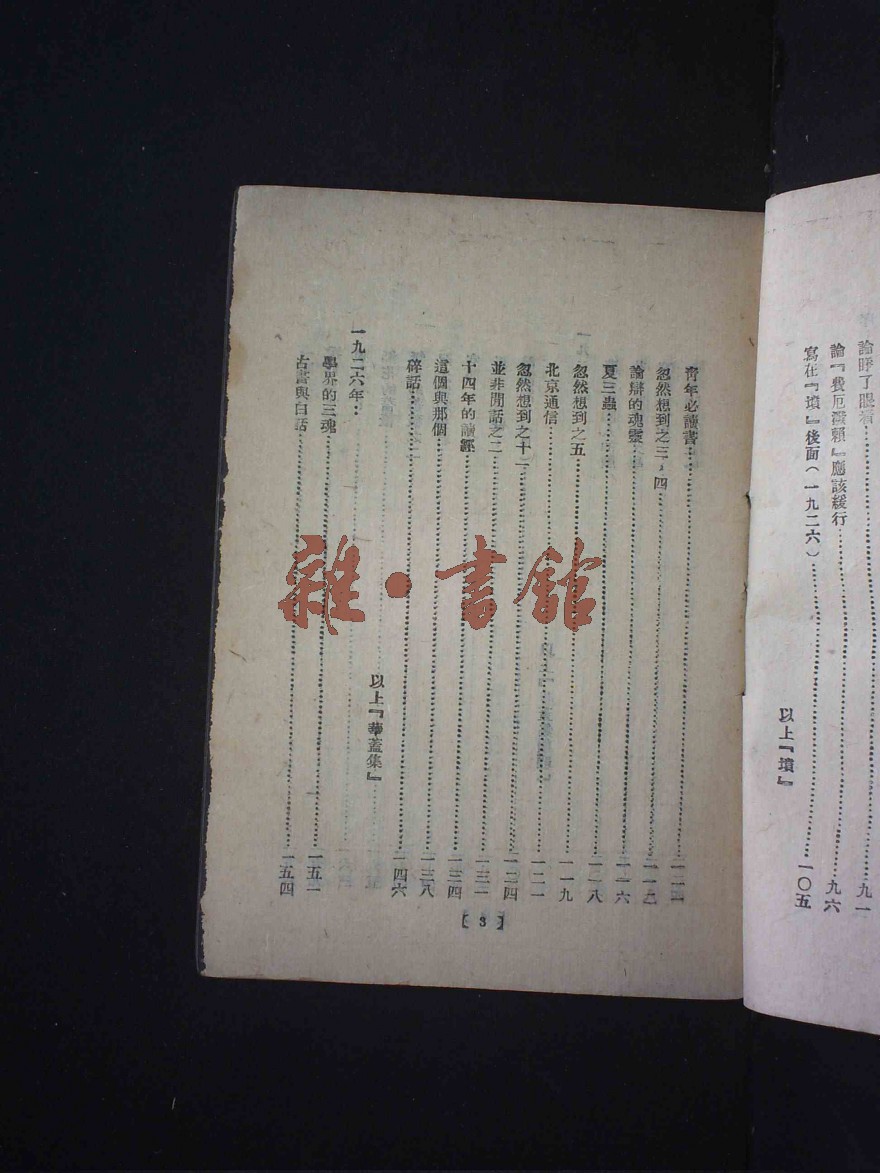 論睜了眼看……九一
論『費厄潑賴』應該緩行……九六
寫在『墳』後面(一九二六)……一〇五
以上『墳』
青年必讀書……一一一
忽然想到之三、四……一一二
論辯的魂靈……一一六
夏三蟲……一一八
忽然想到之五……一一九
北京通信……一二一
忽然想到之十一……一二四
並非閒話之二……一三一
十四年的讀經……一三四
這個與那個……一三八
碎話……一四六
以上『華蓋集』
一九二六年:
學界的三魂……一五一
古書與白話……一五四
【3】
雜·書館